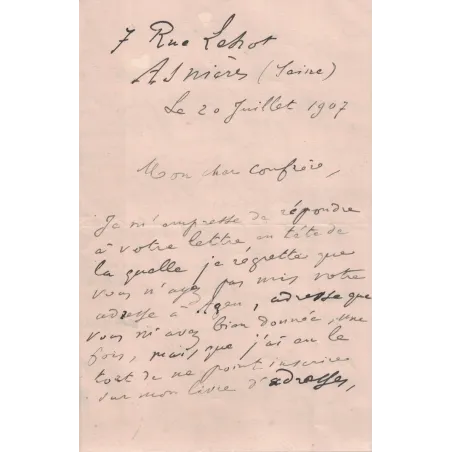 7 Rue Lehot
Asnières (Seine)
Le 20 Juillet 1907
Mon cher confrère,
Je m'empresse de répondre
à votre lettre en tête de
la quelle je régrette que
vous n'ayez pas mis votre
adresse à Agen, adresse que
vous m'avez bien donnée, une
fois, mais, que j'ai eu le
tort de ne point inscrire
sur mon livre d'adresses,